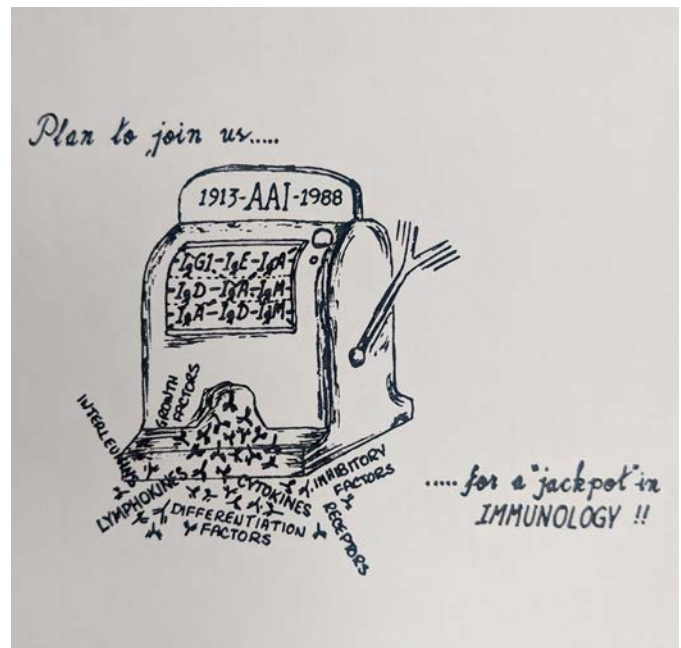 Plan to join us.....
1913-AAI-1988
IgG1-IgE-IgA
IgD-IgA-IgM
IgA-IgD-IgM
GROWTH
FACTORS
INTERLEUKINS
LYMPHOKINES
CYTOKINES
INHIBITORY
FACTORS
DIFFERENTIATION
FACTORS
RECEPTORS
..... for a "jackpot" in
IMMUNOLOGY !!